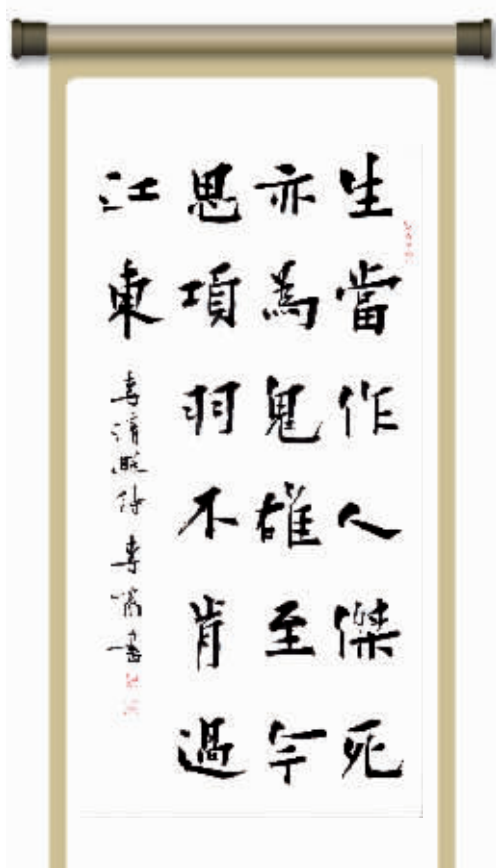 生當作人傑死
亦為鬼雄至今
思項羽不肯過
江東
李清照詩 李
書